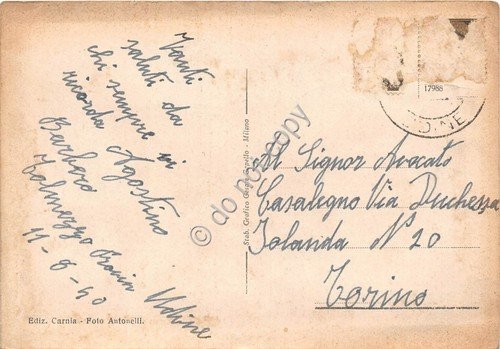 Tanti
saluti da
chi sempre vi
ricorda
Agostino
Barbero
Tolmezzo Udine
11-8-40
Al Signor Avocato
Casalegno Via Duchessa
Jolanda N° 20
Torino
17988
UDINE
Stab. Grafico Milano
Ediz. Carnia - Foto Antonelli.
© do not copy